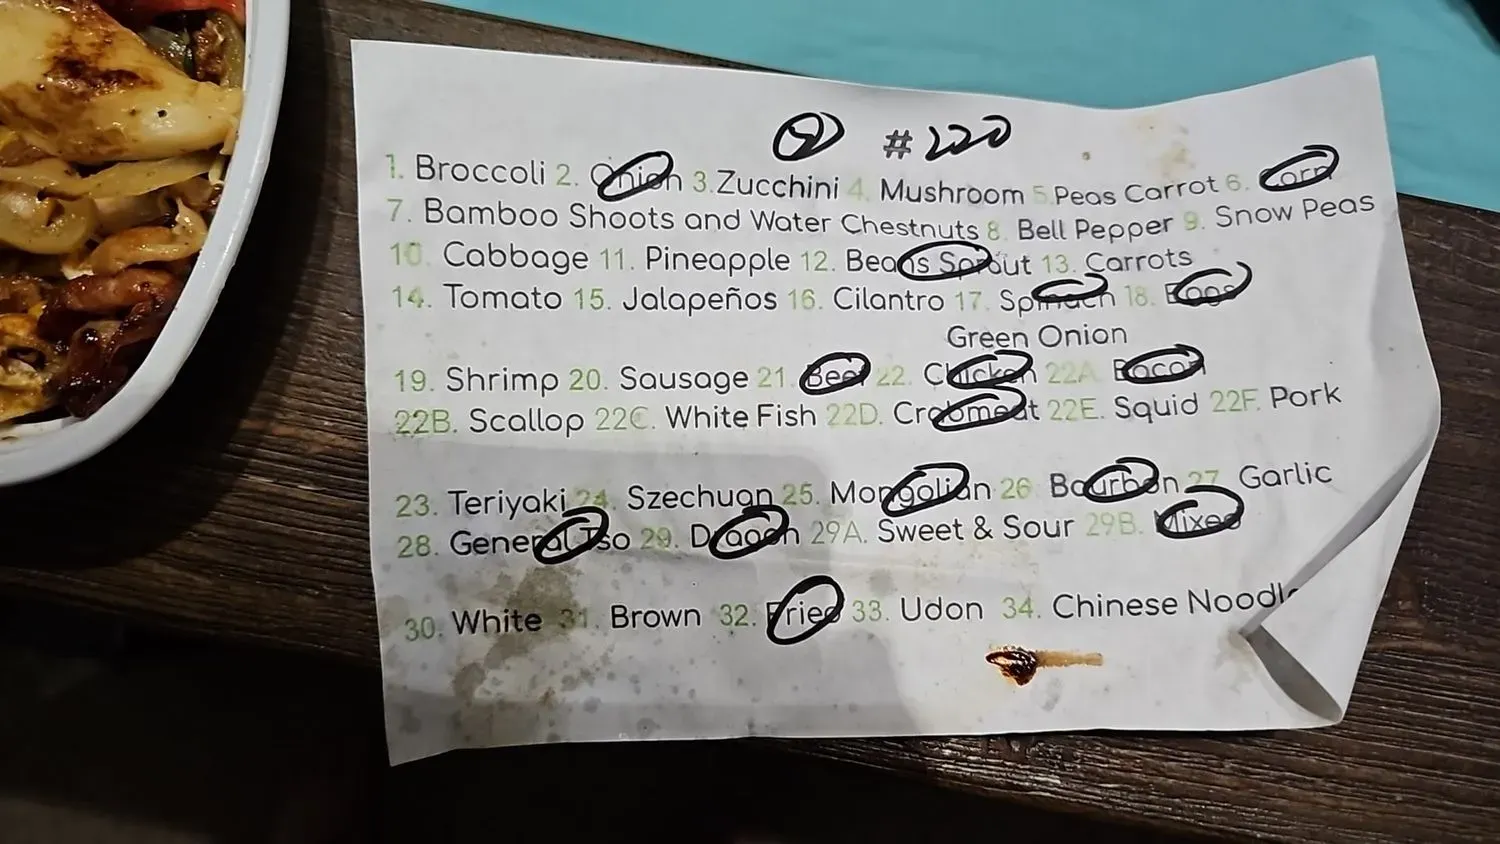 #220
1. Broccoli 2. Onion 3.Zucchini 4. Mushroom 5.Peas Carrot 6. Corn
7. Bamboo Shoots and Water Chestnuts 8. Bell Pepper 9. Snow Peas
10. Cabbage 11. Pineapple 12. Beans Sprout 13. Carrots
14. Tomato 15. Jalapeños 16. Cilantro 17. Spinach 18. Eggs
Green Onion
19. Shrimp 20. Sausage 21. Beef 22. Chicken 22A. Bacon
22B. Scallop 22C. White Fish 22D. Crabmeat 22E. Squid 22F. Pork
23. Teriyaki 24. Szechuan 25. Mongolian 26. Bourbon 27. Garlic
28. General Tso 29. Dragon 29A. Sweet & Sour 29B. Mixed
30. White 31. Brown 32. Fried 33. Udon 34. Chinese Noodle